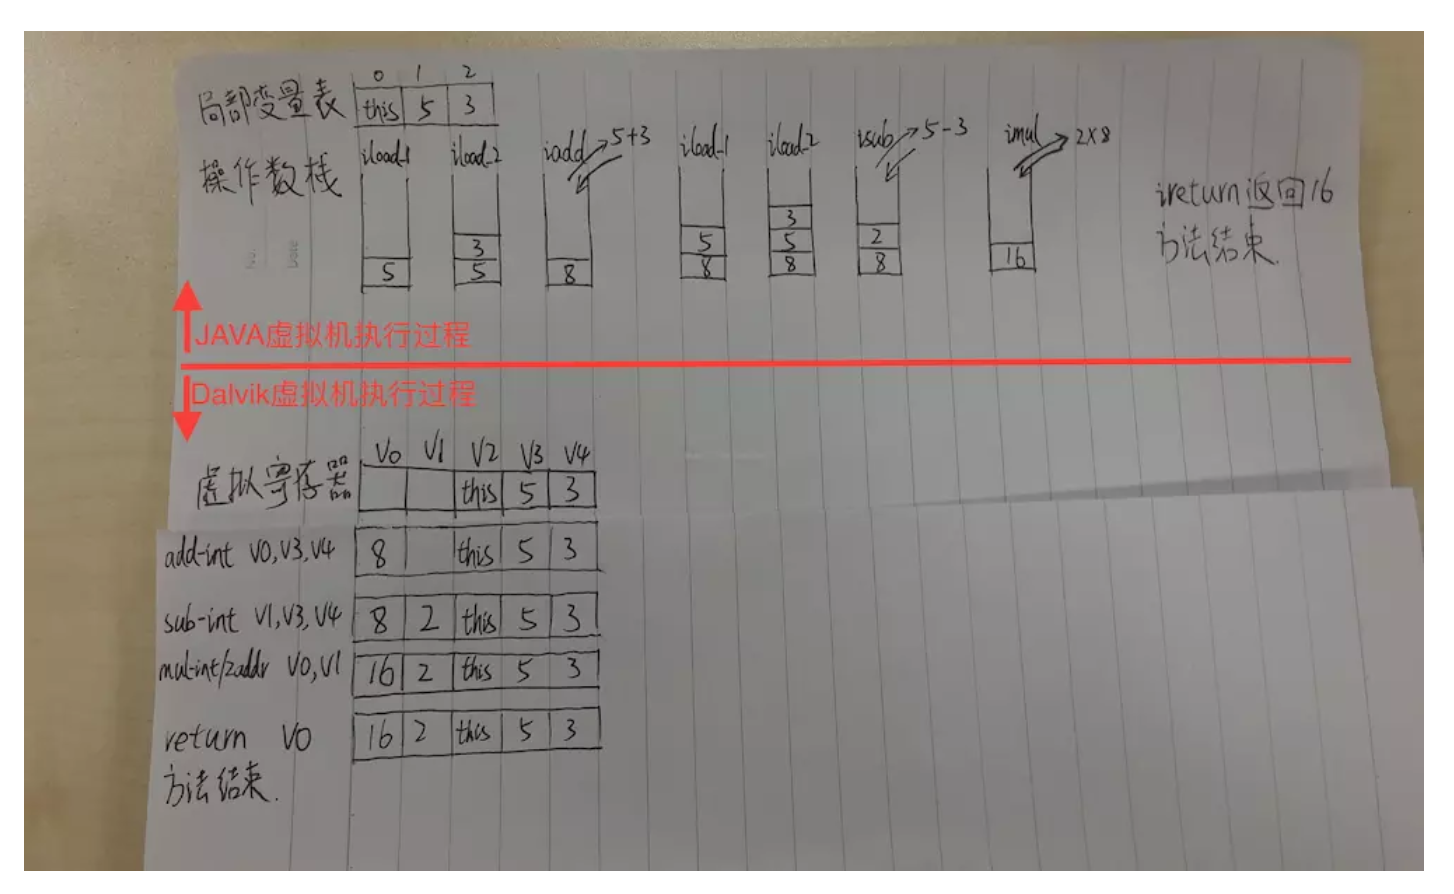 0 1 2
局部变量表 this 5 3
操作数栈 iload_1 iload_2 iadd 5+3 iload_1 iload_2 isub 5-3 imul 2×8
3 5 3 5 2
5 5 8 8 8 8 16
ireturn返回16
方法结束.
No.
Date
JAVA虚拟机执行过程
Dalvik虚拟机执行过程
V0 V1 V2 V3 V4
虚拟寄存器 this 5 3
add-int V0,V3,V4 8 this 5 3
sub-int V1,V3,V4 8 2 this 5 3
mul-int/2addr V0,V1 16 2 this 5 3
return V0 16 2 this 5 3
方法结束.